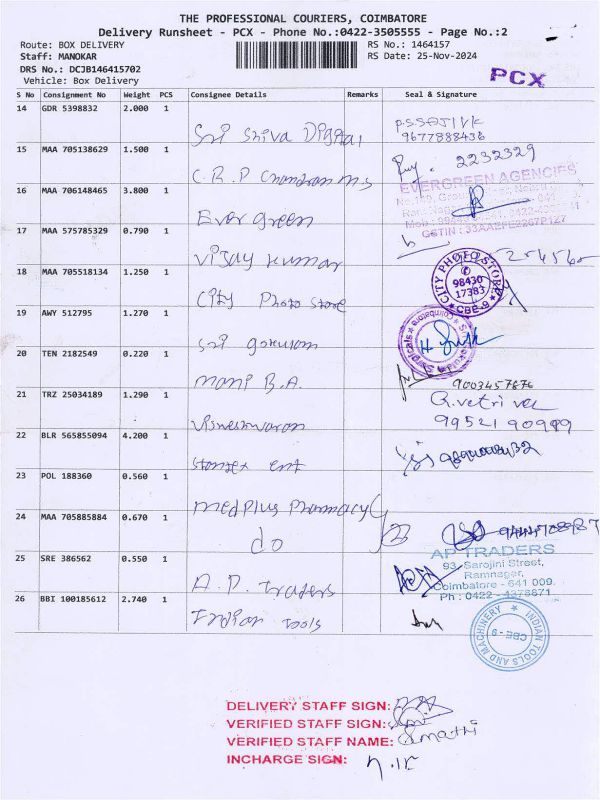 THE PROFESSIONAL COURIERS, COIMBATORE
Delivery Runsheet - PCX - Phone No.:0422-3505555 - Page No.:2
Route: BOX DELIVERY RS No.: 1464157
Staff: MANOKAR RS Date: 25-Nov-2024
DRS No.: DCJB146415702
Vehicle: Box Delivery
PCX
S No Consignment No Weight PCS Consignee Details Remarks Seal & Signature
14 GDR 5398832 2.000 1 Sri Shiva Digital 9677888436
15 MAA 705138629 1.500 1 C.R.P Chandran M.S 2232329
16 MAA 706148465 3.800 1 Ever green
EVERGREEN AGENCIES
GSTIN : 33AAEFE2267P127
17 MAA 575785329 0.790 1 Vijay Kumar
18 MAA 705518134 1.250 1 City Photo Store
CITY PHOTO STORE
98430
17383
CBE-9
19 AWY 512795 1.270 1 Sri Gokulam
Coimbatore
20 TEN 2182549 0.220 1 Mani B.A. 9003457676
21 TRZ 25034189 1.290 1 Visweshwaran G.vetri vel
9952190999
22 BLR 565855094 4.200 1 ent
23 POL 188360 0.560 1 Medplus Pharmacy
24 MAA 705885884 0.670 1 do
25 SRE 386562 0.550 1 A.P. Traders
AP TRADERS
93, Sarojini Street,
Ramnagar,
Coimbatore - 641 009.
Ph : 0422 - 4376871
26 BBI 100185612 2.740 1 Indian Tools
INDIAN TOOLS AND MACHINERY
CBE - 9
DELIVERY STAFF SIGN:
VERIFIED STAFF SIGN:
VERIFIED STAFF NAME: Sumathi
INCHARGE SIGN: